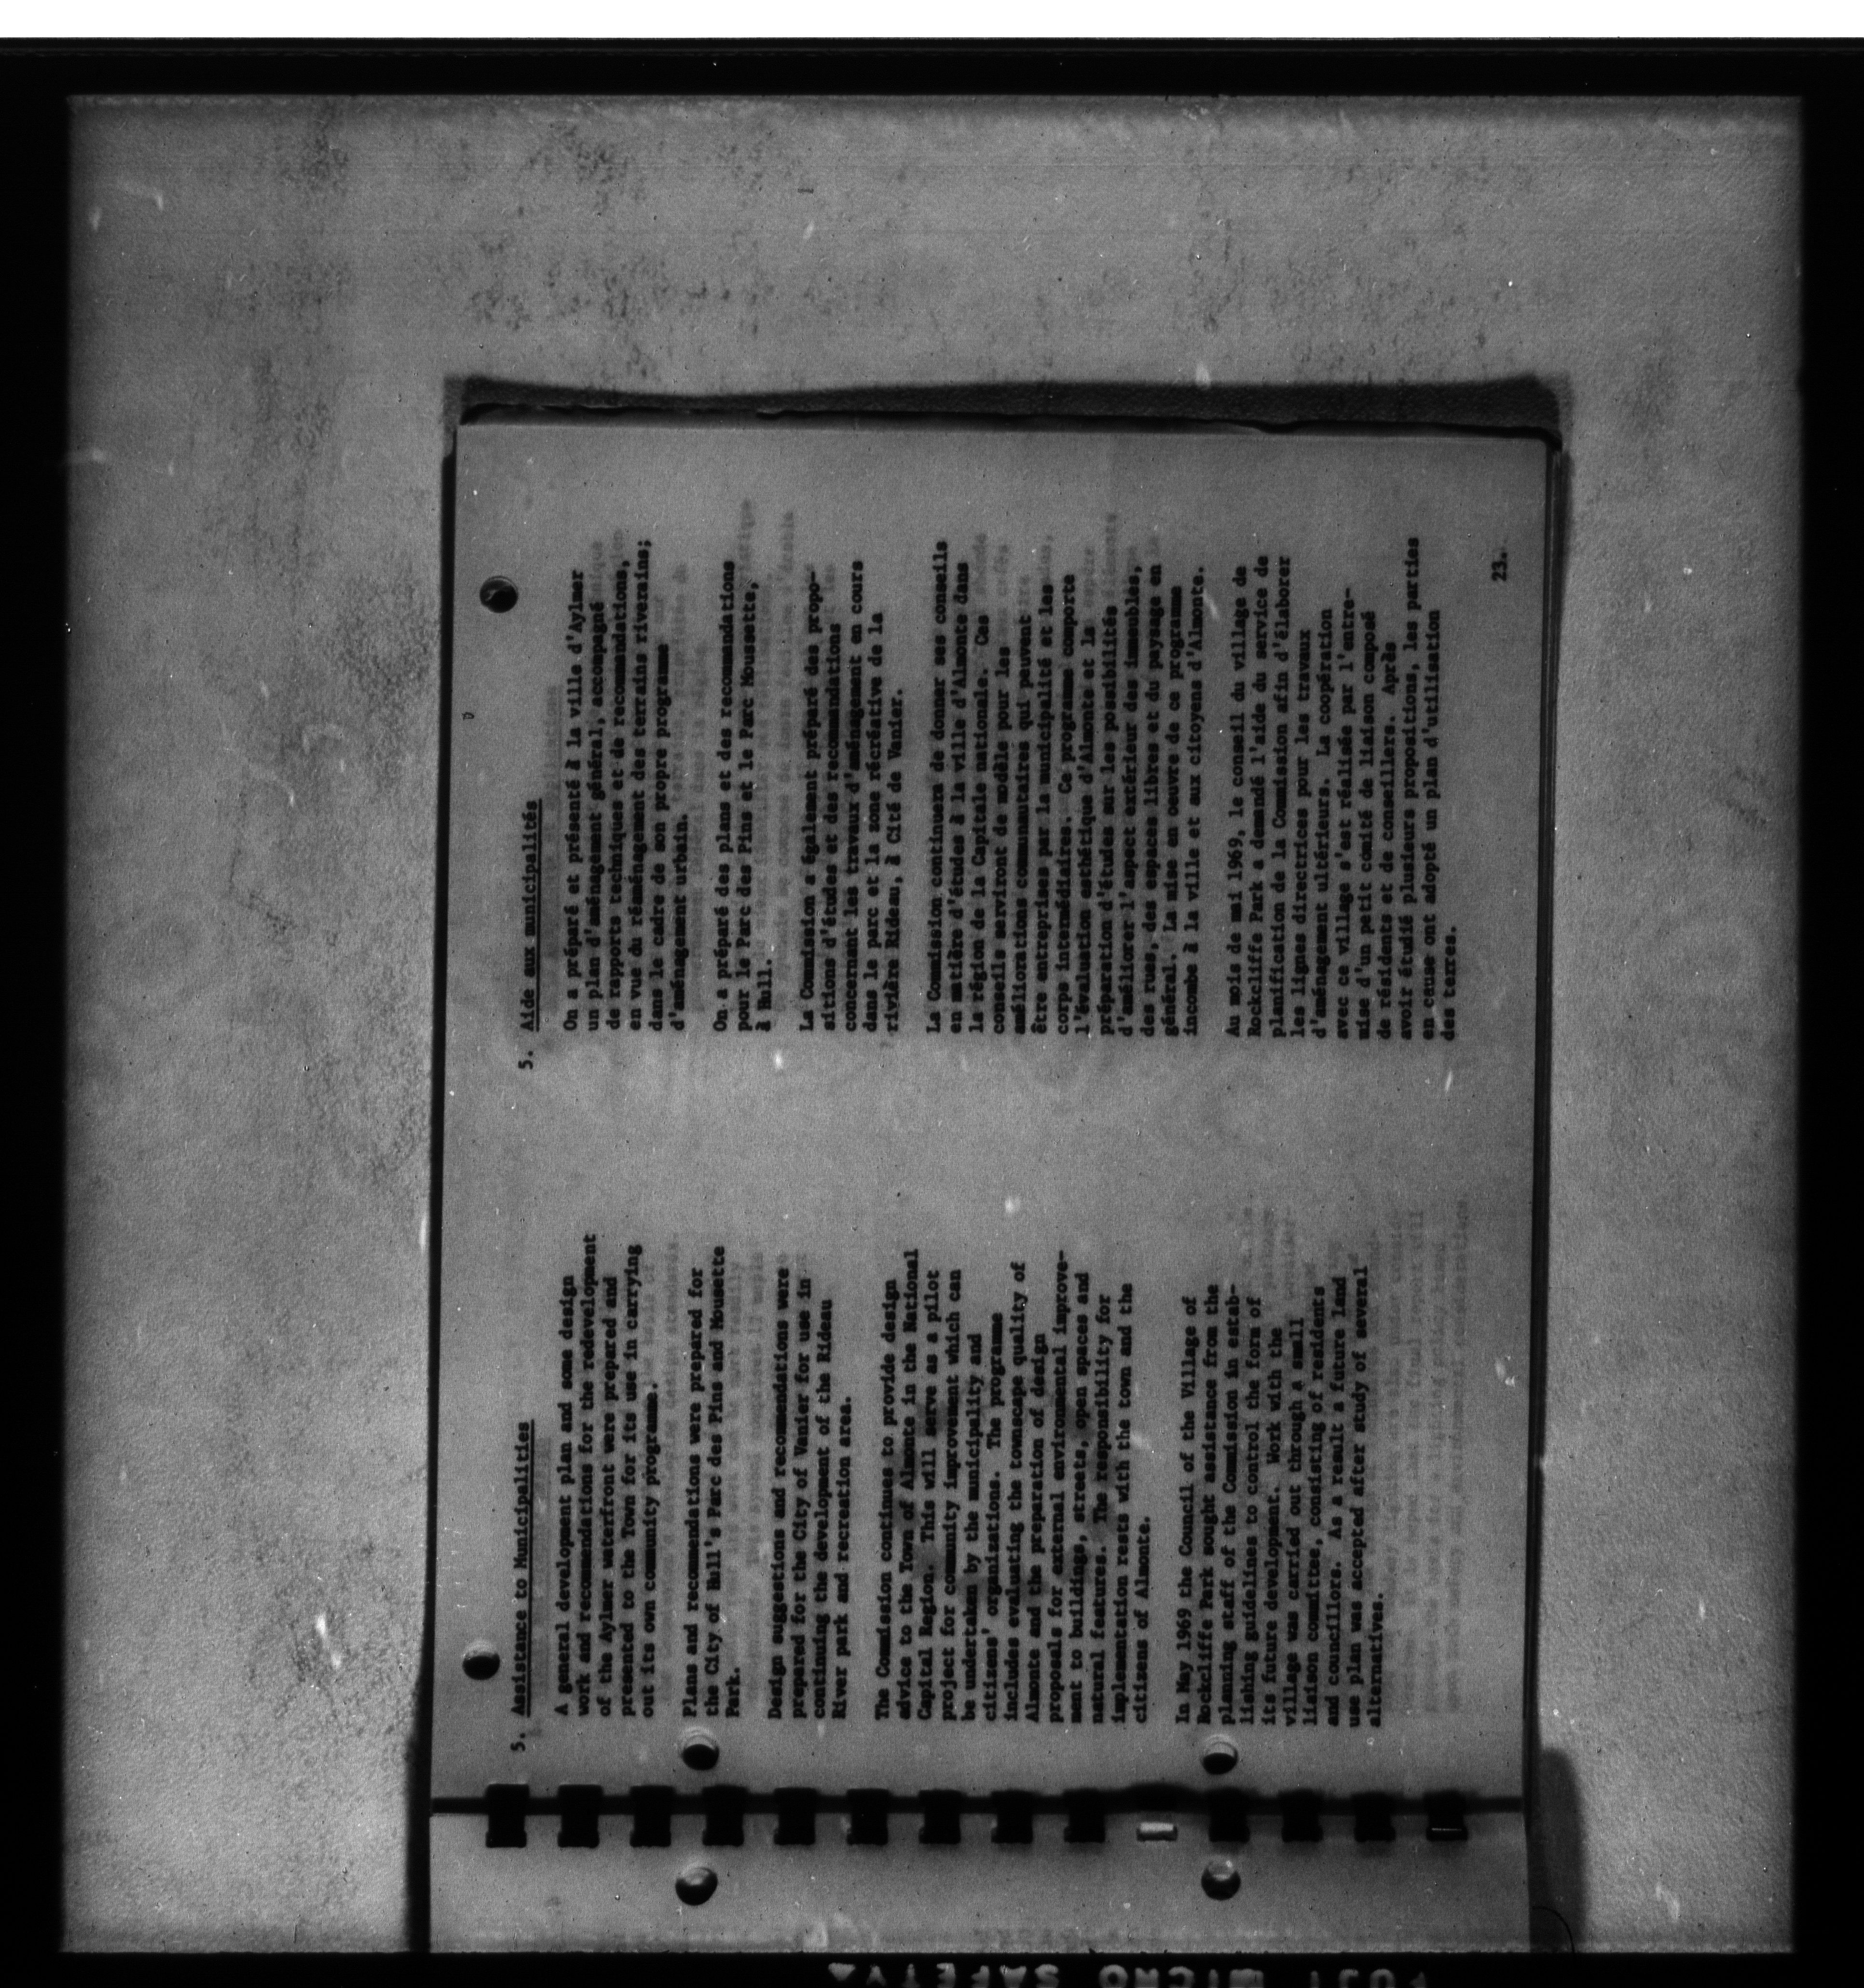 5. Assistance to Municipalities
A general development plan and some design
work and recommendations for the redevelopment
of the Aylmer waterfront were prepared and
presented to the Town for its use in carrying
out its own community programme.
Plans and recommendations were prepared for
the City of Hull's Parc des Pins and Mousette
Park.
Design suggestions and recommendations were
prepared for the City of Vanier for use in
continuing the development of the Rideau
River park and recreation area.
The Commission continues to provide design
advice to the Town of Almonte in the National
Capital Region. This will serve as a pilot
project for community improvement which can
be undertaken by the municipality and
citizens' organisations. The programme
includes evaluating the townscape quality of
Almonte and the preparation of design
proposals for external environmental improve-
ment to buildings, streets, open spaces and
natural features. The responsibility for
implementation rests with the town and the
citizens of Almonte.
In May 1969 the Council of the Village of
Rockcliffe Park sought assistance from the
planning staff of the Commission in estab-
lishing guidelines to control the form of
its future development. Work with the
village was carried out through a small
liaison committee, consisting of residents
and councillors. As a result a future land
use plan was accepted after study of several
alternatives.
5. Aide aux municipalités
On a préparé et présenté à la ville d'Aylmer
un plan d'aménagement général, accompagné
de rapports techniques et de recommandations,
en vue du réaménagement des terrains riverains;
dans le cadre de son propre programme
d'aménagement urbain.
On a préparé des plans et des recommandations
pour le Parc des Pins et le Parc Moussette,
à Hull.
La Commission a également préparé des propo-
sitions d'études et des recommandations
concernant les travaux d'aménagement en cours
dans le parc et la zone récréative de la
rivière Rideau, à Cité de Vanier.
La Commission continuera de donner ses conseils
en matière d'études à la ville d'Almonte dans
la région de la Capitale nationale. Ces
conseils serviront de modèle pour les
améliorations communautaires qui peuvent
être entreprises par la municipalité et les
corps intermédiaires. Ce programme comporte
l'évaluation esthétique d'Almonte et la
préparation d'études sur les possibilités
d'améliorer l'aspect extérieur des immeubles,
des rues, des espaces libres et du paysage en
général. La mise en oeuvre de ce programme
incombe à la ville et aux citoyens d'Almonte.
Au mois de mai 1969, le conseil du village de
Rockcliffe Park a demandé l'aide du service de
planification de la Commission afin d'élaborer
les lignes directrices pour les travaux
d'aménagement ultérieurs. La coopération
avec ce village s'est réalisée par l'entre-
mise d'un petit comité de liaison composé
de résidents et de conseillers. Après
avoir étudié plusieurs propositions, les parties
en cause ont adopté un plan d'utilisation
des terres.
23.
FUJI MICRO SAFETY